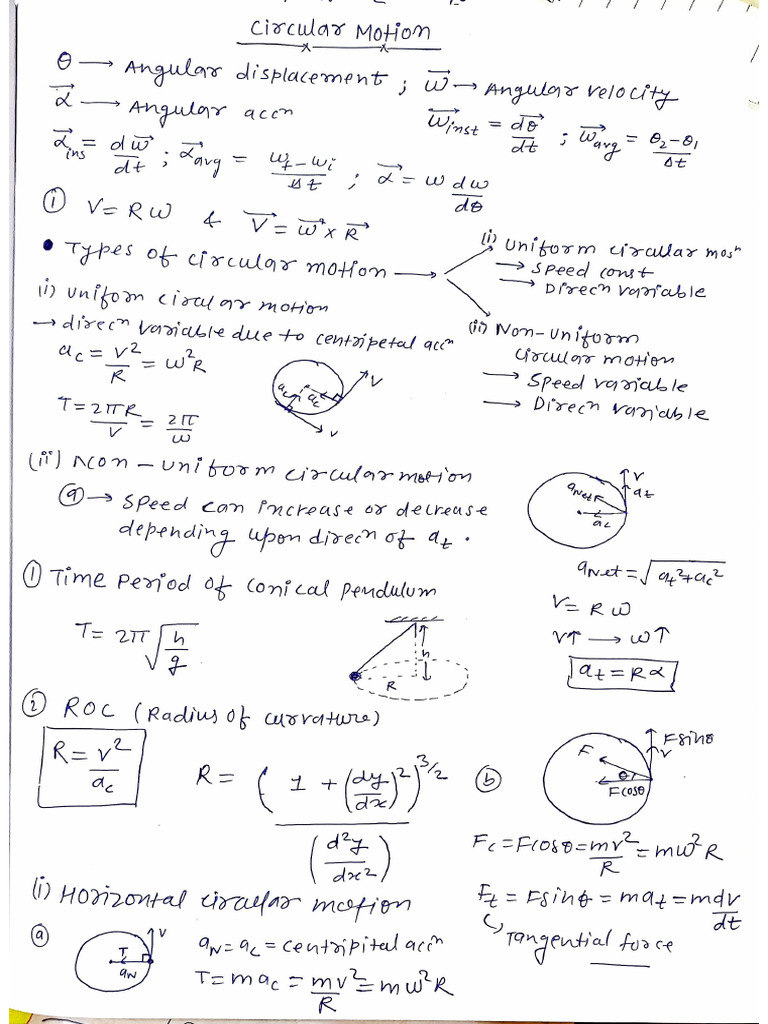 Circular Motion
θ → Angular displacement ; ω⃗ → Angular velocity
α⃗ → Angular accn
ω⃗inst = dθ⃗/dt ; ω⃗avg = θ2-θ1/Δt
α⃗ins = dω⃗/dt ; α⃗avg = ωf-ωi/Δt ; α⃗ = ω dω/dθ
① V = Rω & V⃗ = ω⃗ x R⃗
• Types of circular motion →
(i) Uniform circular mosn
→ Speed const
→ Direcn variable
(ii) Non-uniform
circular motion
→ Speed variable
→ Direcn variable
(i) Uniform circular motion
→ direcn variable due to centripetal accn
ac = v²/R = ω²R
ac ac v v
T = 2πR/V = 2π/ω
(ii) Non-uniform circular motion
ⓐ → Speed can increase or decrease
depending upon direcn of at .
aNet ac v at
aNet = √at²+ac²
V = Rω
V↑ → ω↑
at = Rα
① Time Period of conical pendulum
T = 2π√h/g
h R
② ROC (Radius of curvature)
R = v²/ac
R = (1 + (dy/dx)²)^3/2 / (d²y/dx²)
ⓑ F Fsinθ v θ Fcosθ
Fc = Fcosθ = mv²/R = mω²R
Ft = Fsinθ = mat = mdv/dt
↳ Tangential force
(i) Horizontal circular motion
ⓐ T aN v
aN = ac = centripital accn
T = mac = mv²/R = mω²R